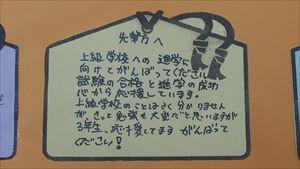 先輩方へ
上級学校への進学に
向けてがんばってください
試験の合格と進学の成功
心から応援しています。
上級学校のことはよく分かりません
が、きっと勉強も大変だと思いますが
3年生、応援してます がんばって
ください!